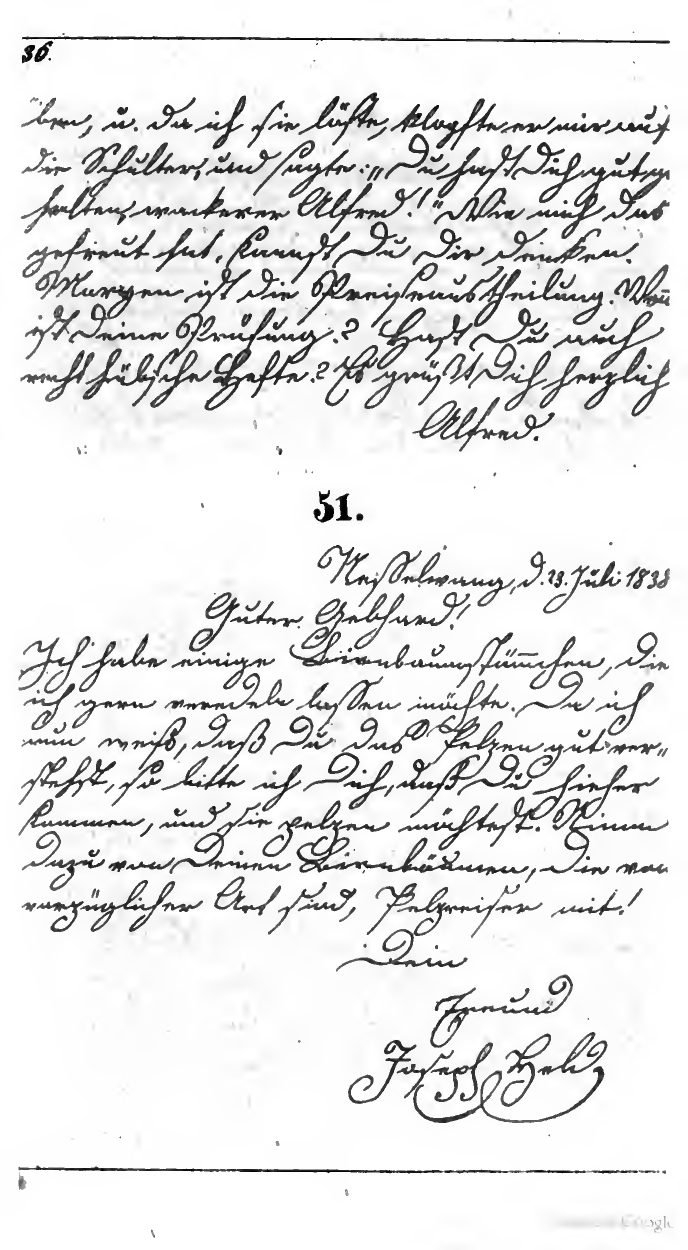 36.
ben, u. da ich sie löste, klopfte er mir auf
die Schulter, und sagte: „Du hast Dich gut ge
halten, wackerer Alfred!" Wie mich das
gefreut hat, kannst Du Dir denken.
Morgen ist die Preiseaustheilung. Wann
ist Deine Prüfung? Hast Du auch
recht hübsche Hefte? Es grüßt Dich herzlich
Alfred.
51.
Nesselwang, d. 23. Juli 1838
Guter Gebhard!
Ich habe einige Birnbaumstämmchen, die
ich gern veredeln lassen möchte. Da ich
nun weiß, daß Du das Pelzen gut ver„
stehst, so bitte ich Dich, daß Du hieher
kommen, und sie pelzen möchtest. Nimm
dazu von Deinen Birnbäumen, die von
vorzüglicher Art sind, Pelzreiser mit!
Dein
Freund
Joseph Held